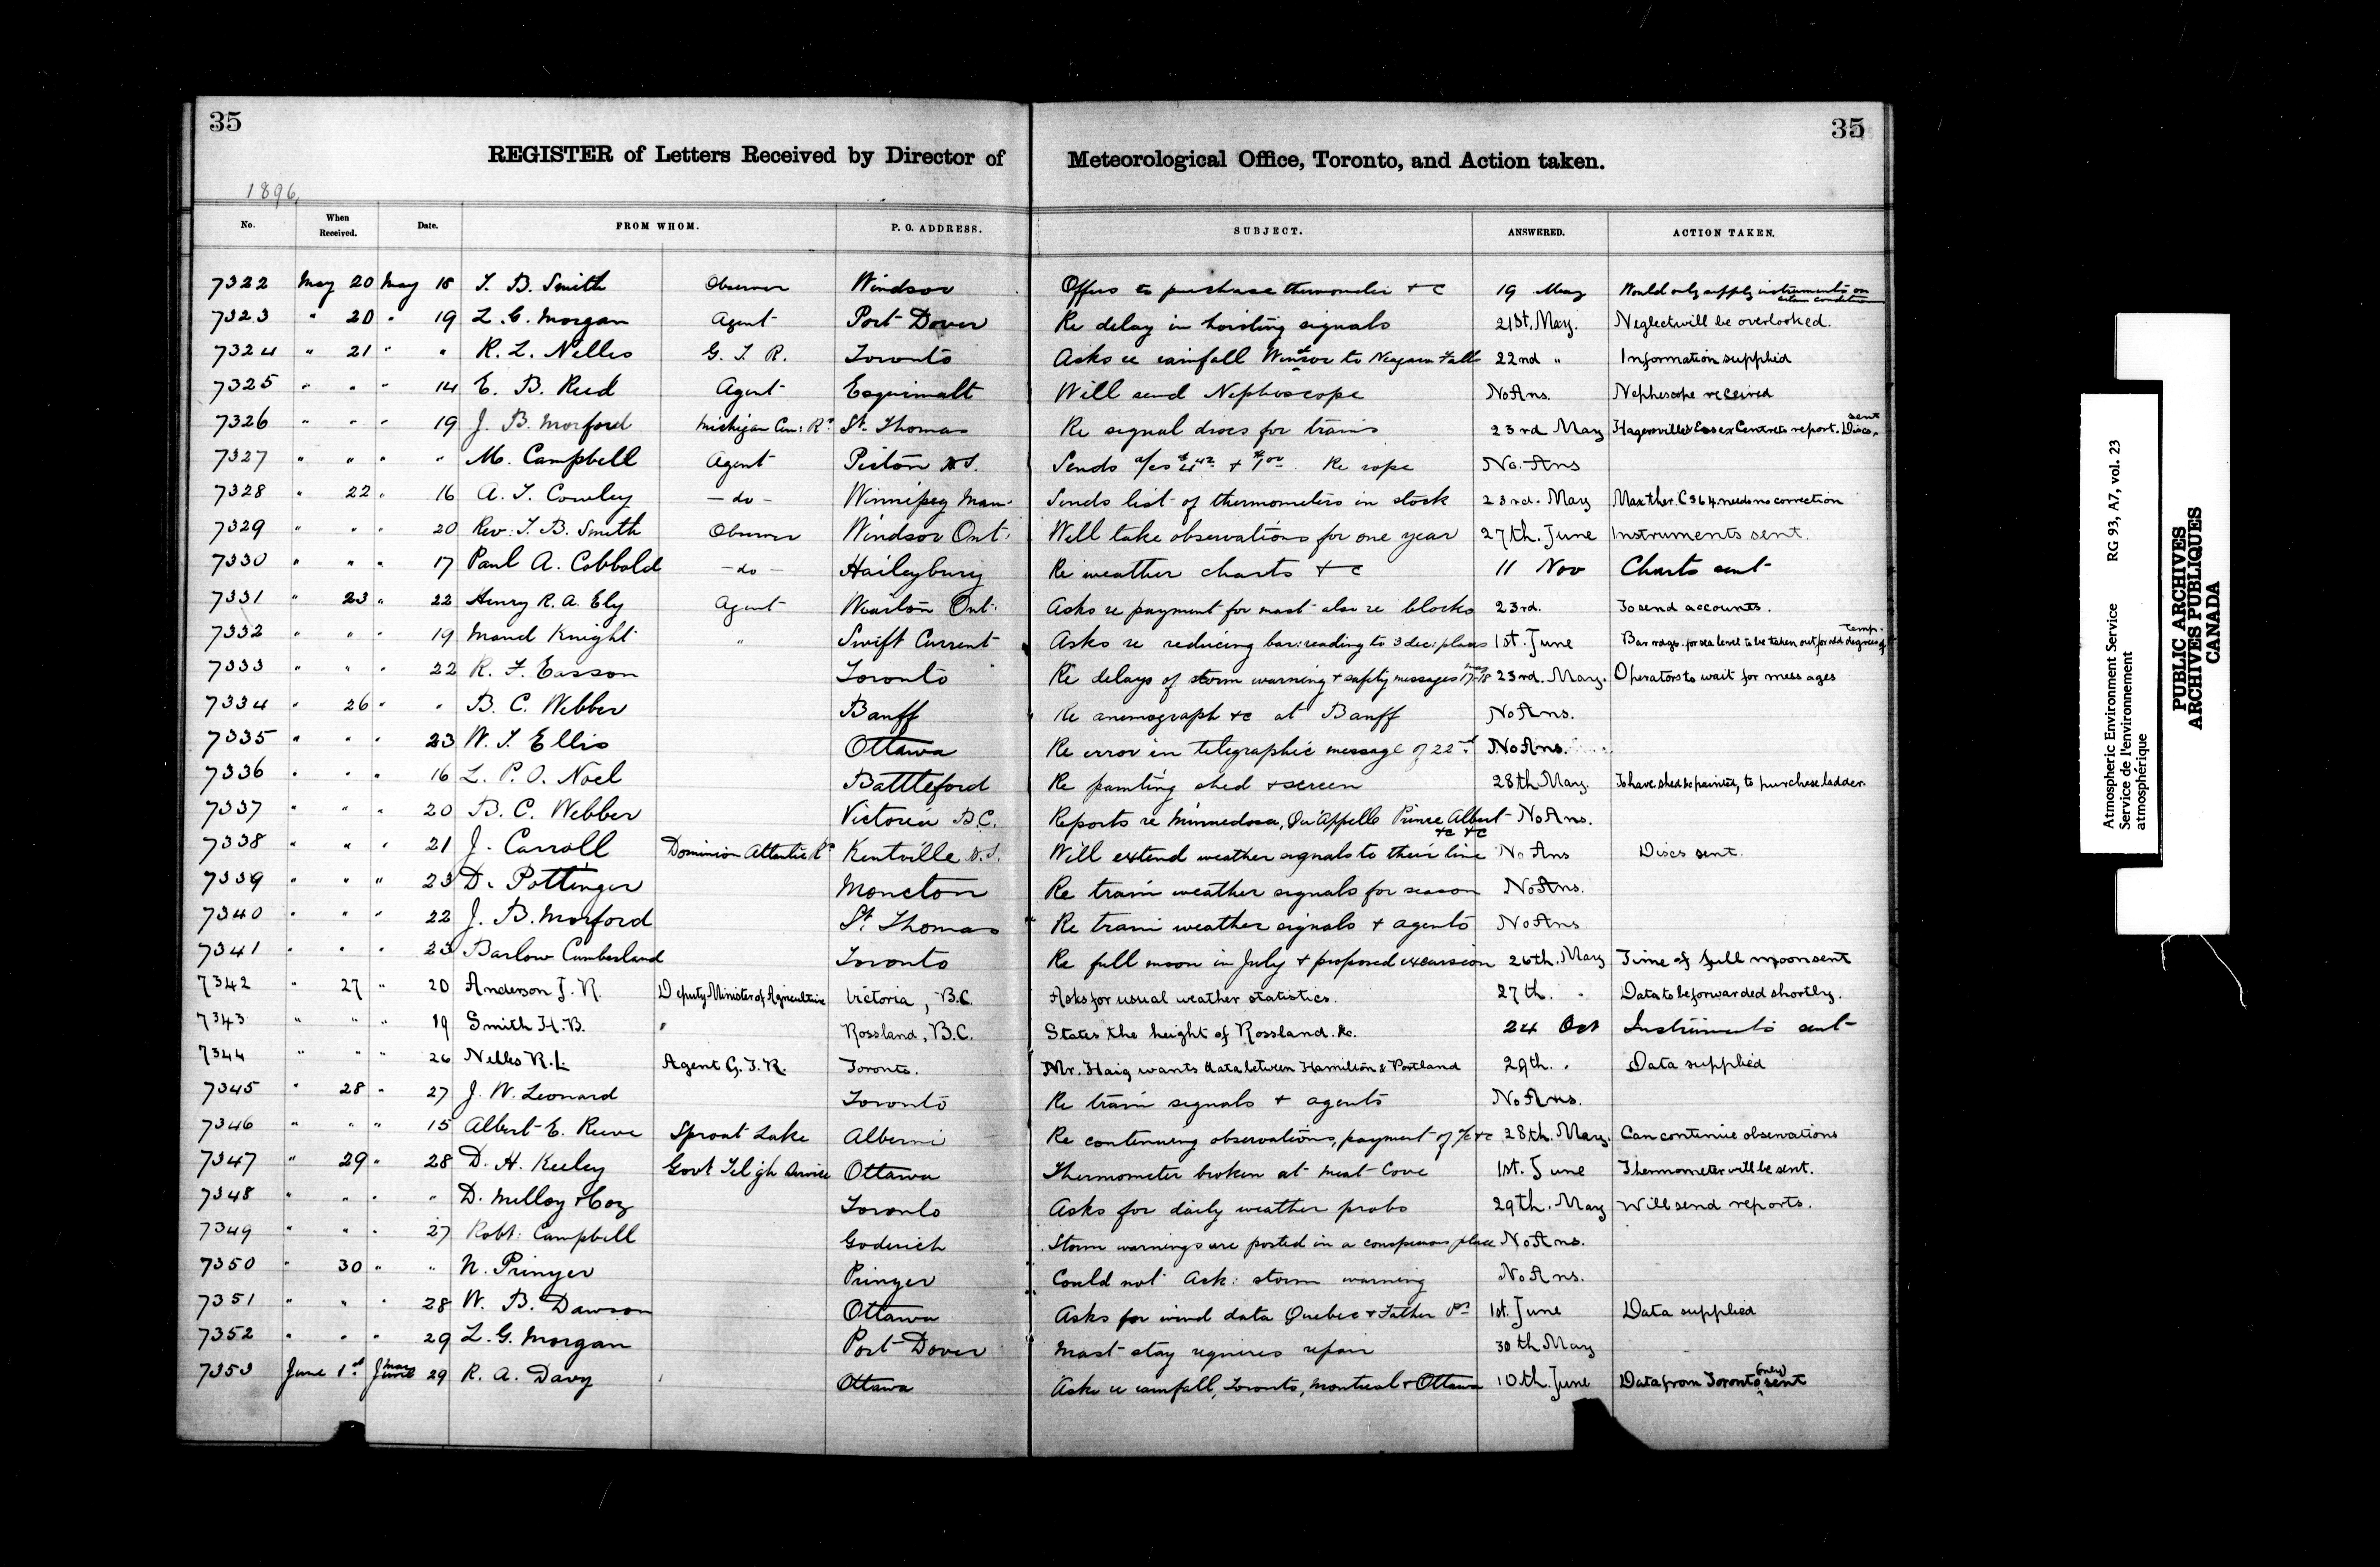 35
35
REGISTER of Letters Received by Director of Meteorological Office, Toronto, and Action taken.
1896,
No. When Received. Date. FROM WHOM. P. O. ADDRESS. SUBJECT. ANSWERED. ACTION TAKEN.
7322 May 20 May 18 T. B. Smith Observer Windsor Offers to purchase thermometer + c 19 May Would only supply instruments on certain conditions
7323 " 20 " 19 L. G. Morgan Agent Port Dover Re delay in hoisting signals 21st. May. Neglect will be overlooked.
7324 " 21 " " R. L. Nelles G. T. R. Toronto Asks re rainfall Windsor to Niagara Falls 22nd " Information supplied
7325 " " " 14 E. B. Reed Agent Esquimalt Will send Nephoscope No Ans. Nephescope received
7326 " " " 19 J. B. Morford Michigan Cen: Ry St. Thomas Re signal discs for trains 23rd May Hagersville & Essex Centre to report. Discs sent.
7327 " " " " M. Campbell Agent Pictou N.S. Sends a/cs + Re rope No. Ans
7328 " 22 " 16 A. T. Cowley - do - Winnipeg Man. Sends list of thermometers in stock 23rd. May Max ther. C 364 needs no correction
7329 " " " 20 Rev. T. B. Smith Observer Windsor Ont. Will take observations for one year 27th. June Instruments sent.
7330 " " " 17 Paul A. Cobbold - do - Haileybury Re weather charts + c 11 Nov Charts sent
7331 " 23 " 22 Henry R. A. Ely Agent Wiarton Ont. Asks re payment for mast also re blocks 23rd. To send accounts.
7332 " " " 19 Maud Knight " Swift Current Asks re reducing bar: reading to 3 dec: places 1st. June Bar rdgs. for sea level to be taken out for degrees of temp.
7333 " " " 22 R. F. Easson Toronto Re delays of storm warning + safety messages May 17-18 23rd. May. Operators to wait for messages
7334 " 26 " " B. C. Webber Banff Re anemograph +c at Banff No Ans.
7335 " " " 23 W. T. Ellis Ottawa Re error in telegraphic message of 22nd No Ans.
7336 " " " 16 L. P. O. Noel Battleford Re painting shed + screen 28th May. To have shed be painted, to purchase ladder.
7337 " " " 20 B. C. Webber Victoria B.C. Reports re Minnedosa, Qu'Appelle Prince Albert +c +c No Ans.
7338 " " " 21 J. Carroll Dominion Atlantic Ry Kentville N.S. Will extend weather signals to their line No Ans Discs sent.
7339 " " " 23 D. Pottinger Moncton Re train weather signals for season No Ans.
7340 " " " 22 J. B. Morford St. Thomas Re train weather signals + agents No Ans
7341 " " " 23 Barlow Cumberland Toronto Re full moon in July + proposed excursion 26th. May Time of full moon sent
7342 " 27 " 20 Anderson J. R. Deputy Minister of Agriculture Victoria, B.C. Asks for usual weather statistics. 27th. " Data to be forwarded shortly.
7343 " " " 19 Smith H. B. " Rossland, B.C. States the height of Rossland. &c. 24 Oct Instruments sent
7344 " " " 26 Nelles R. L. Agent G. T. R. Toronto. Mr. Haig wants data between Hamilton & Portland 29th. " Data supplied
7345 " 28 " 27 J. W. Leonard Toronto Re train signals + agents No Ans.
7346 " " " 15 Albert E. Reeve Sproat Lake Alberni Re continuing observations, payment of a/c +c 28th. May. Can continue observations
7347 " 29 " 28 D. H. Keeley Govt Telgh Service Ottawa Thermometer broken at Meat Cove 1st. June Thermometer will be sent.
7348 " " " " D. Milloy + Coy Toronto Asks for daily weather probs 29th. May Will send reports.
7349 " " " 27 Robt. Campbell Goderich Storm warnings are posted in a conspicuous place No Ans.
7350 " 30 " " N. Prinyer Prinyer Could not Ack: storm warning No Ans.
7351 " " " 28 W. B. Dawson Ottawa Asks for wind data Quebec + Father Pt 1st. June Data supplied
7352 " " " 29 L. G. Morgan Port Dover Mast stay requires repair 30th May
7353 June 1st June May 29 R. A. Davy Ottawa Asks re rainfall, Toronto, Montreal + Ottawa 10th. June Data from Toronto (only) sent
Atmospheric Environment Service RG 93, A7, vol. 23
Service de l'environnement
atmosphérique
PUBLIC ARCHIVES
ARCHIVES PUBLIQUES
CANADA